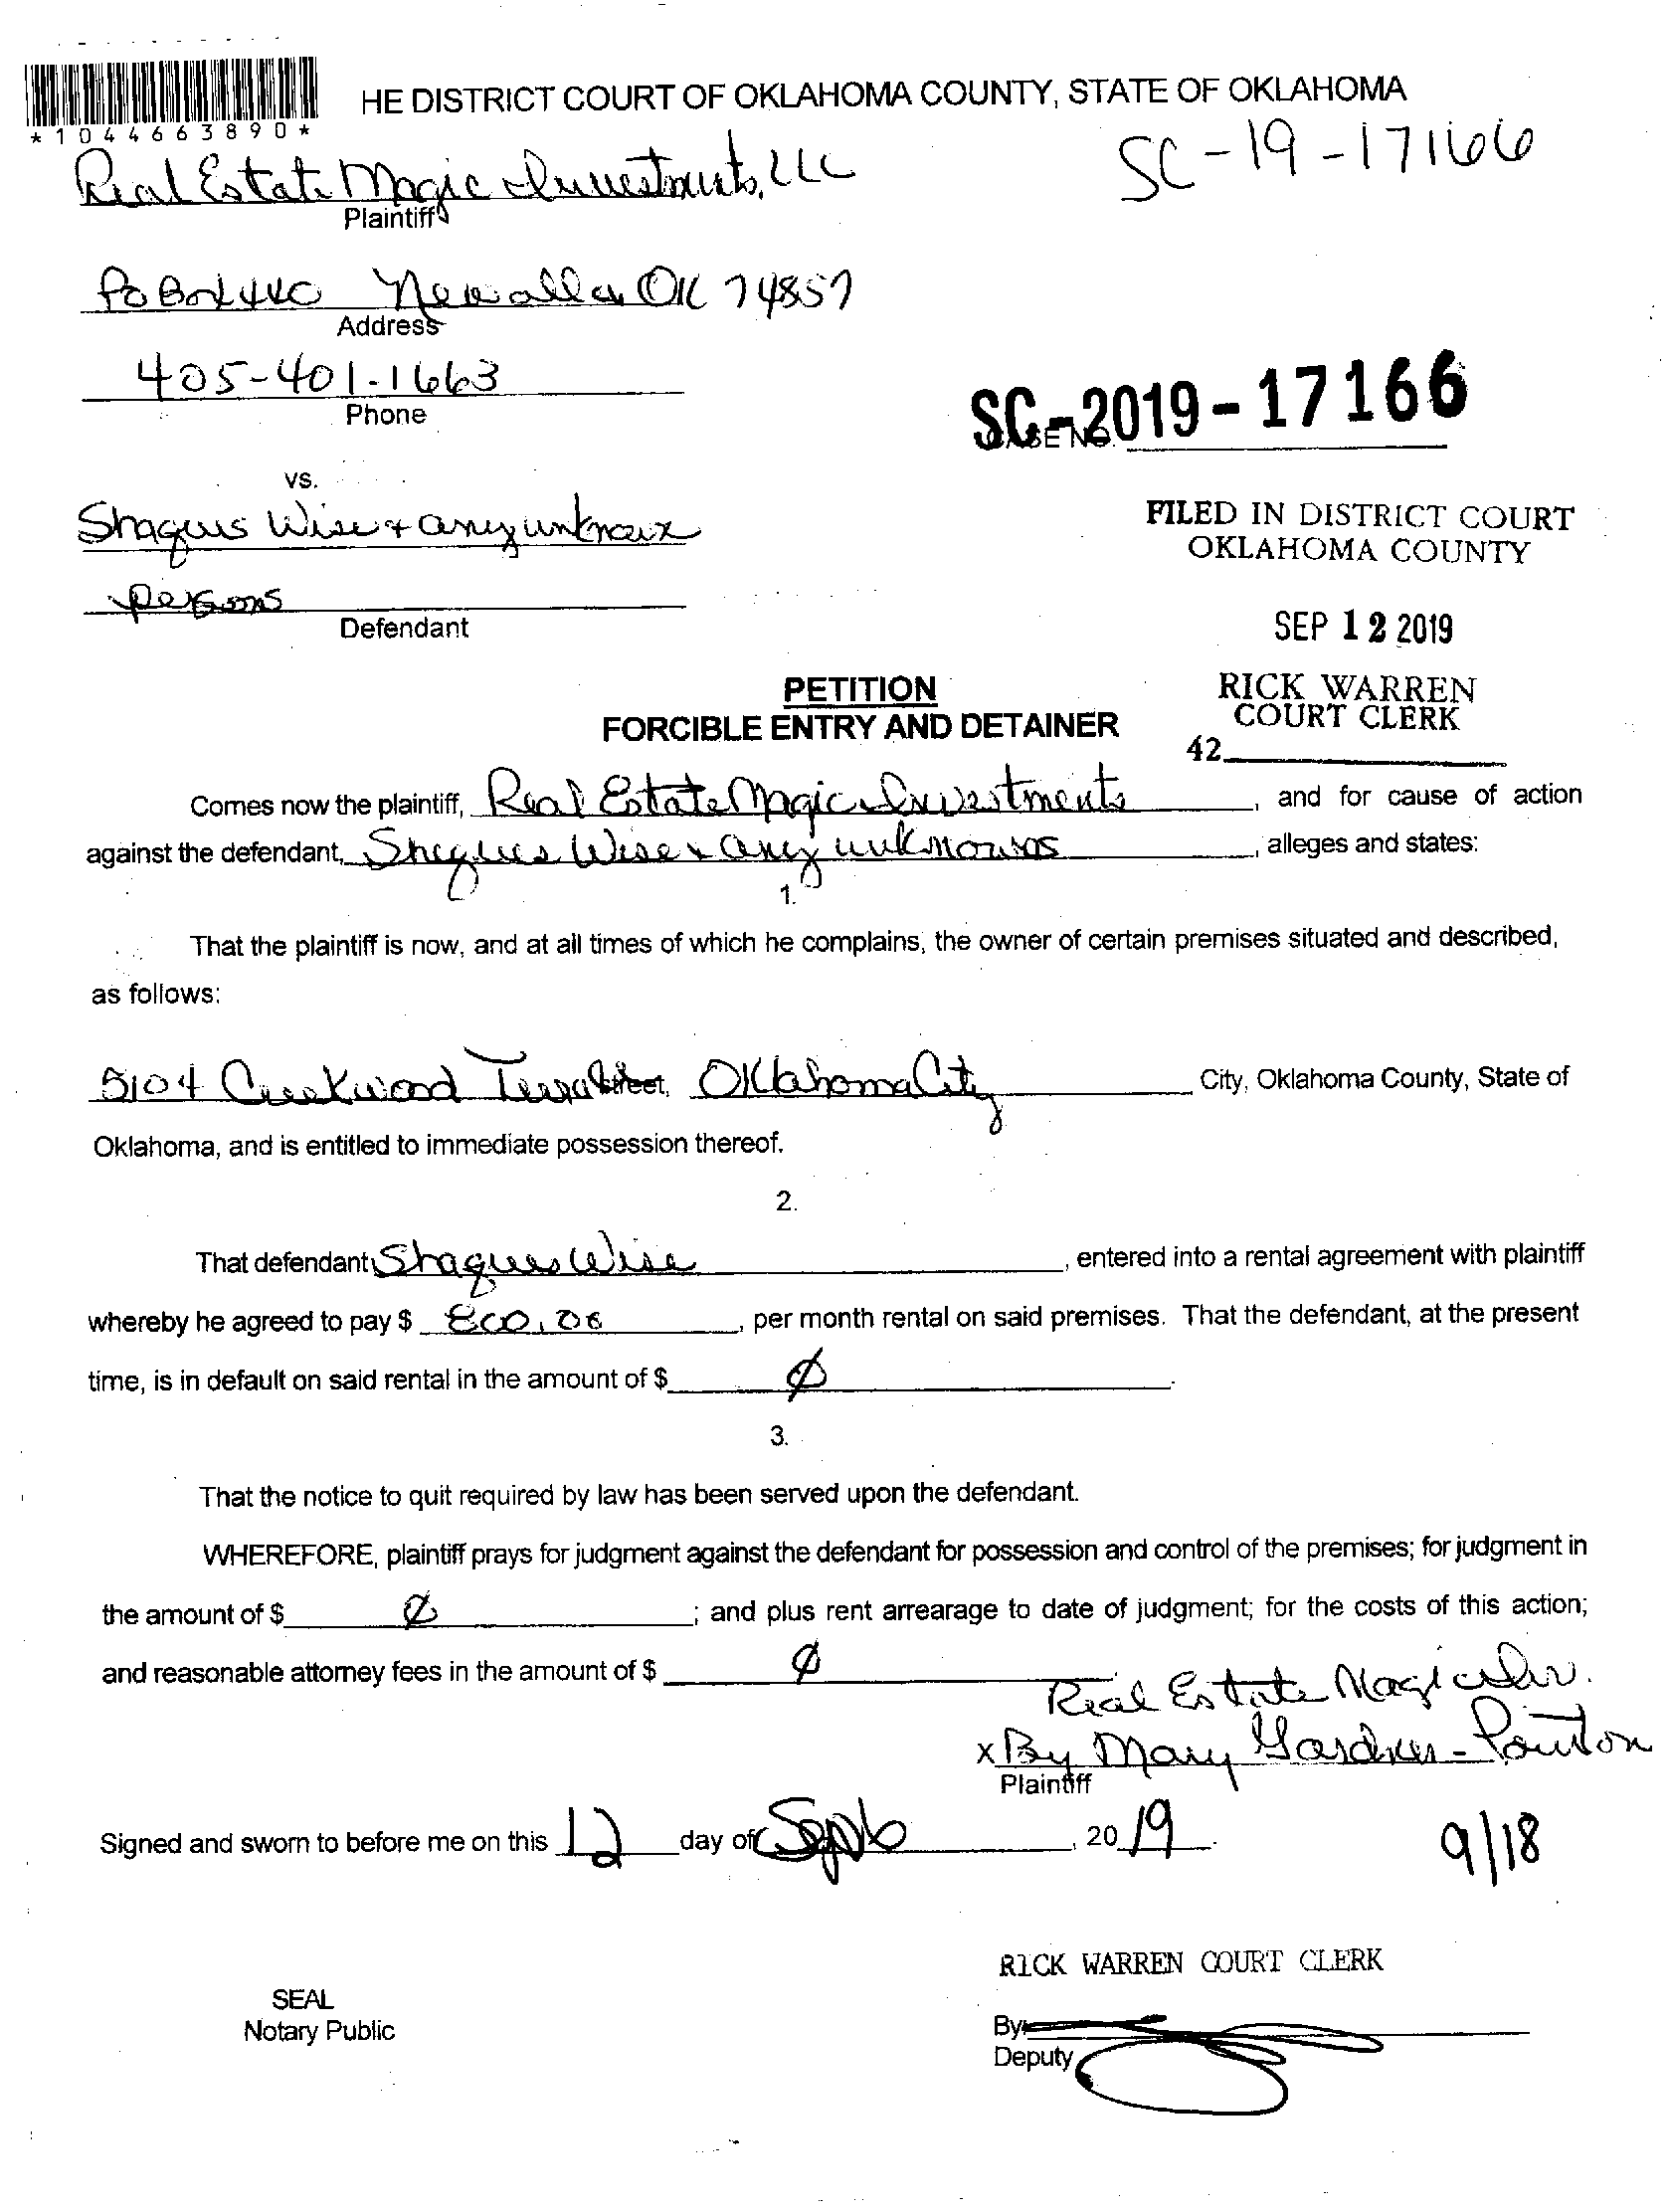 *1044663890*
HE DISTRICT COURT OF OKLAHOMA COUNTY, STATE OF OKLAHOMA
SC-19-17166
Real Estate Magic Investments, LLC
Plaintiff
PO Box 440 Newalla OK 74857
Address
405-401-1663
Phone
SC-2019-17166
CASE NO.
vs.
Shaques Wise & any unknown
persons
Defendant
FILED IN DISTRICT COURT
OKLAHOMA COUNTY
SEP 12 2019
RICK WARREN
COURT CLERK
42
PETITION
FORCIBLE ENTRY AND DETAINER
Comes now the plaintiff, Real Estate Magic Investments, and for cause of action
against the defendant, Shaques Wise & any unknowns, alleges and states:
1.
That the plaintiff is now, and at all times of which he complains, the owner of certain premises situated and described,
as follows:
5104 Creekwood Terra Street, Oklahoma City City, Oklahoma County, State of
Oklahoma, and is entitled to immediate possession thereof.
2.
That defendant, Shaques Wise, entered into a rental agreement with plaintiff
whereby he agreed to pay $ 800.00, per month rental on said premises. That the defendant, at the present
time, is in default on said rental in the amount of $ Ø.
3.
That the notice to quit required by law has been served upon the defendant.
WHEREFORE, plaintiff prays for judgment against the defendant for possession and control of the premises; for judgment in
the amount of $ Ø; and plus rent arrearage to date of judgment; for the costs of this action;
and reasonable attorney fees in the amount of $ Ø
Real Estate Magic Inv.
x By Mary Gardner-Poulton
Plaintiff
Signed and sworn to before me on this 12 day of Sept, 2019.
9/18
RICK WARREN COURT CLERK
SEAL
Notary Public
By
Deputy